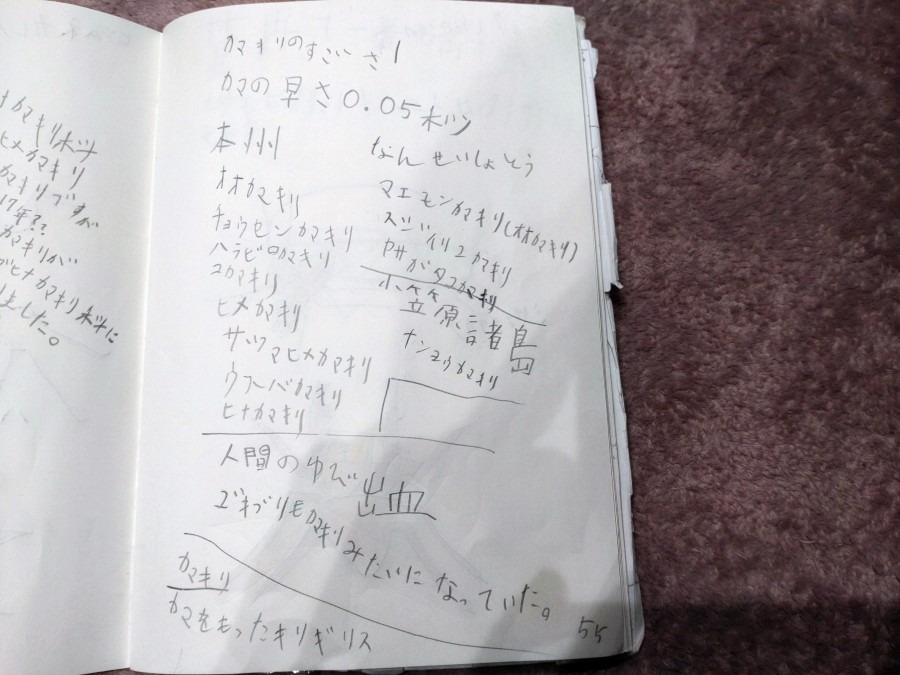 ヒメカマキリ
カマキリですが
17年??
カマキリが
ました。
カマキリのすごさ1
カマの早さ0.05
本州
オオカマキリ
チョウセンカマキリ
ハラビロカマキリ
コカマキリ
ヒメカマキリ
サツマヒメカマキリ
ウスーバカマキリ
ヒナカマキリ
なんせいしょとう
マエモンカマキリ(オオカマキリ)
スジイリコカマキリ
ヤサガタコカマキリ
小笠原諸島
ナンヨウカマキリ
人間のゆび出血
ゴキブリもカマキリみたいになっていた。
カマキリ
カマをもったキリギリス
55